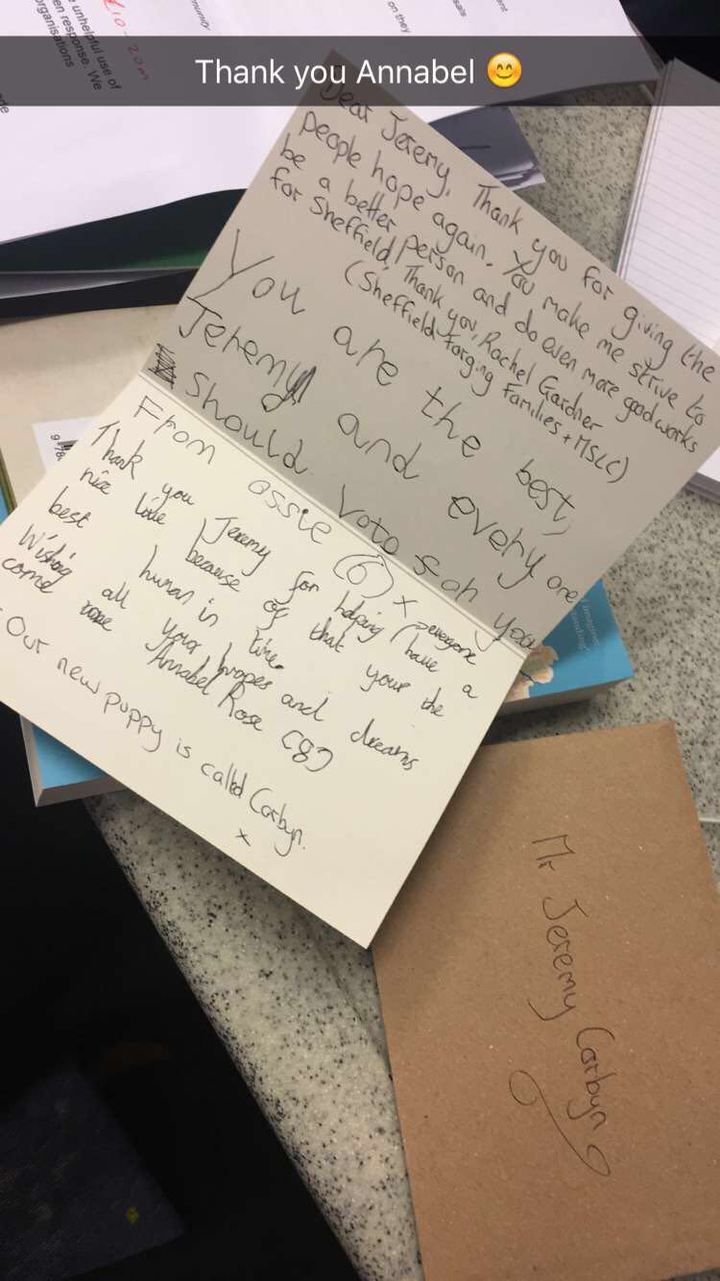 Thank you Annabel 😊
£10-20m
unhelpful use of
en response. We
organisations
on they
Dear Jeremy, Thank you for giving the
people hope again. You make me strive to
be a better person and do even more good works
for Sheffield! Thank you, Rachel Gardner
(Sheffield Forging Families + MSLC)
You are the best,
Jeremy and every one
should Voto foh you
From ossie (6) x
Thank you Jeremy for helping everyone have a
nice live because of that your the
best human in time.
Wishing all your hropes and dreams
come
Annabel Rose (8)
Our new puppy is called Corbyn.
x
Mr Jeremy Corbyn